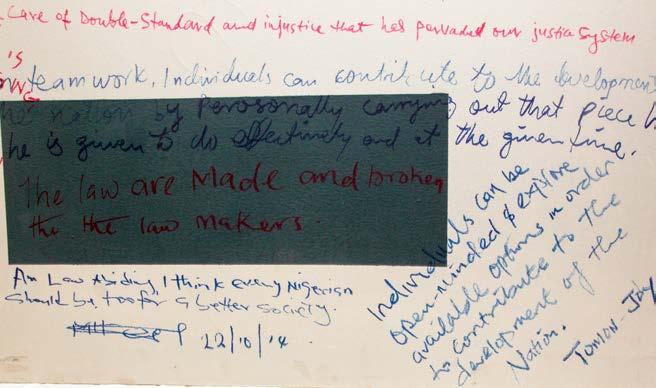 care of Double-Standard and injustice that has pervaded our justia System
's
NG
teamwork. Individuals can contribute to the development
the nation by Perosonally carrying out that piece
he is given to do effectively and at the given time.
The law are Made and broken
the the law makers.
Am Law Abiding, I think every Nigerian
should be too for a better society.
22/10/14
Individuals can be
open-minded & explore
available options in order
to contribute to the
development of the
Nation.